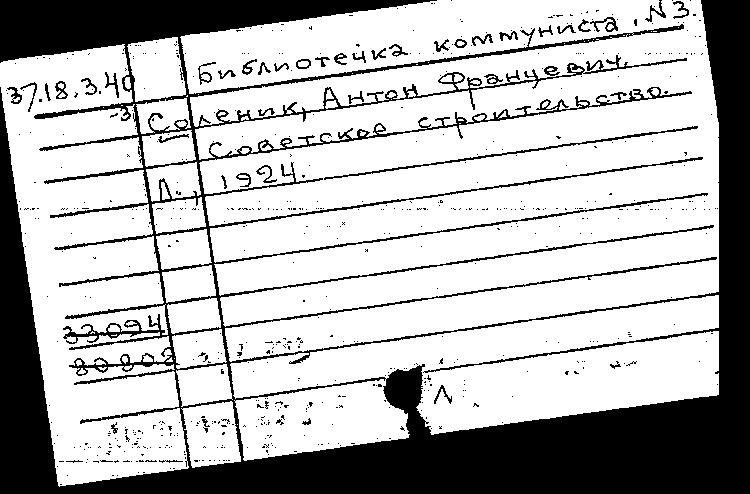 Библиотечка коммуниста. N 3.
37.18.3.40
-3
Соленик, Антон Францевич.
Советское строительство.
Л., 1924.
33094
80808
Л